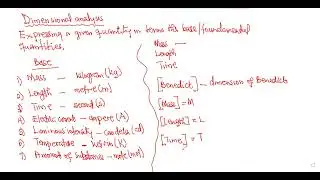 Dimensional analysis
Expressing a given quantity in terms its base/foundamental
quantities.
Base
1) Mass – kilogram (kg)
2) Length – metre (m)
3) Time – second (s)
4) Electric current – ampere (A)
5) Luminous intensity – candela (cd)
6) Temperature – kelvin (K)
7) Amount of substance – mole (mol)
Mass –
Length
Time
[Benedict] – dimension of Benedict
[Mass] = M
[Length] = L
[Time] = T